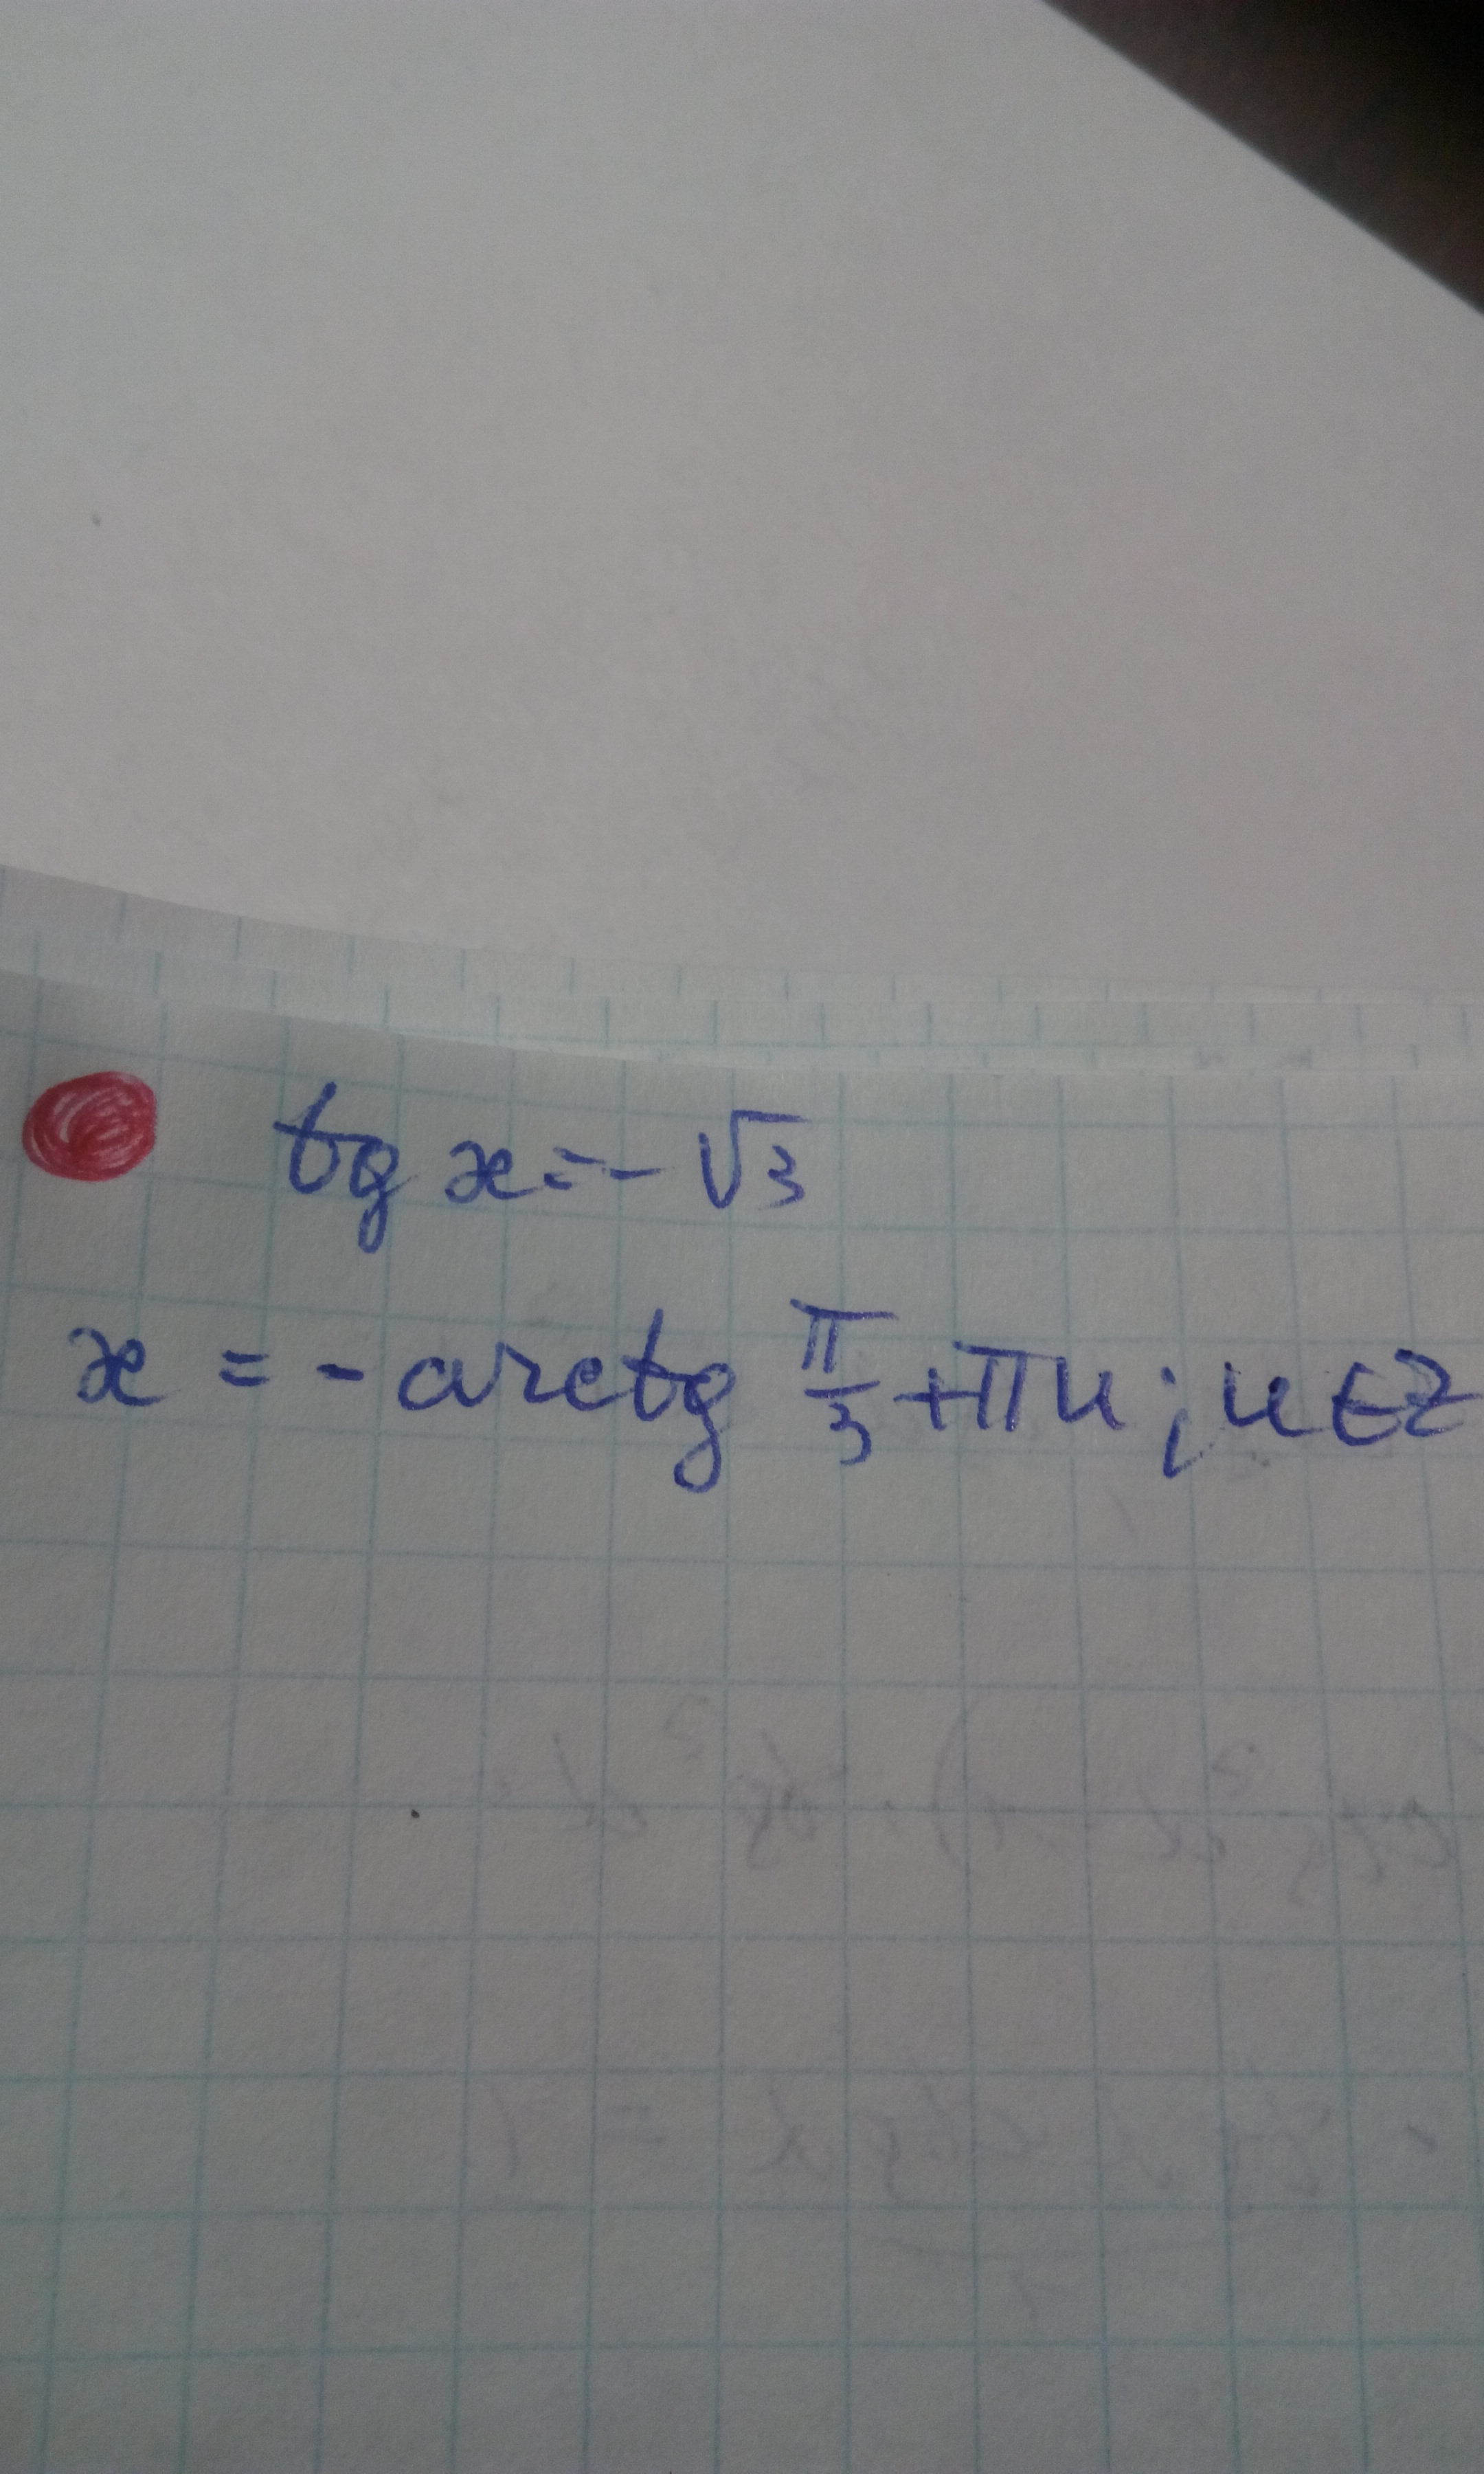 tg x = - √3
x = - arctg π/3 + πn ; n ∈ Z